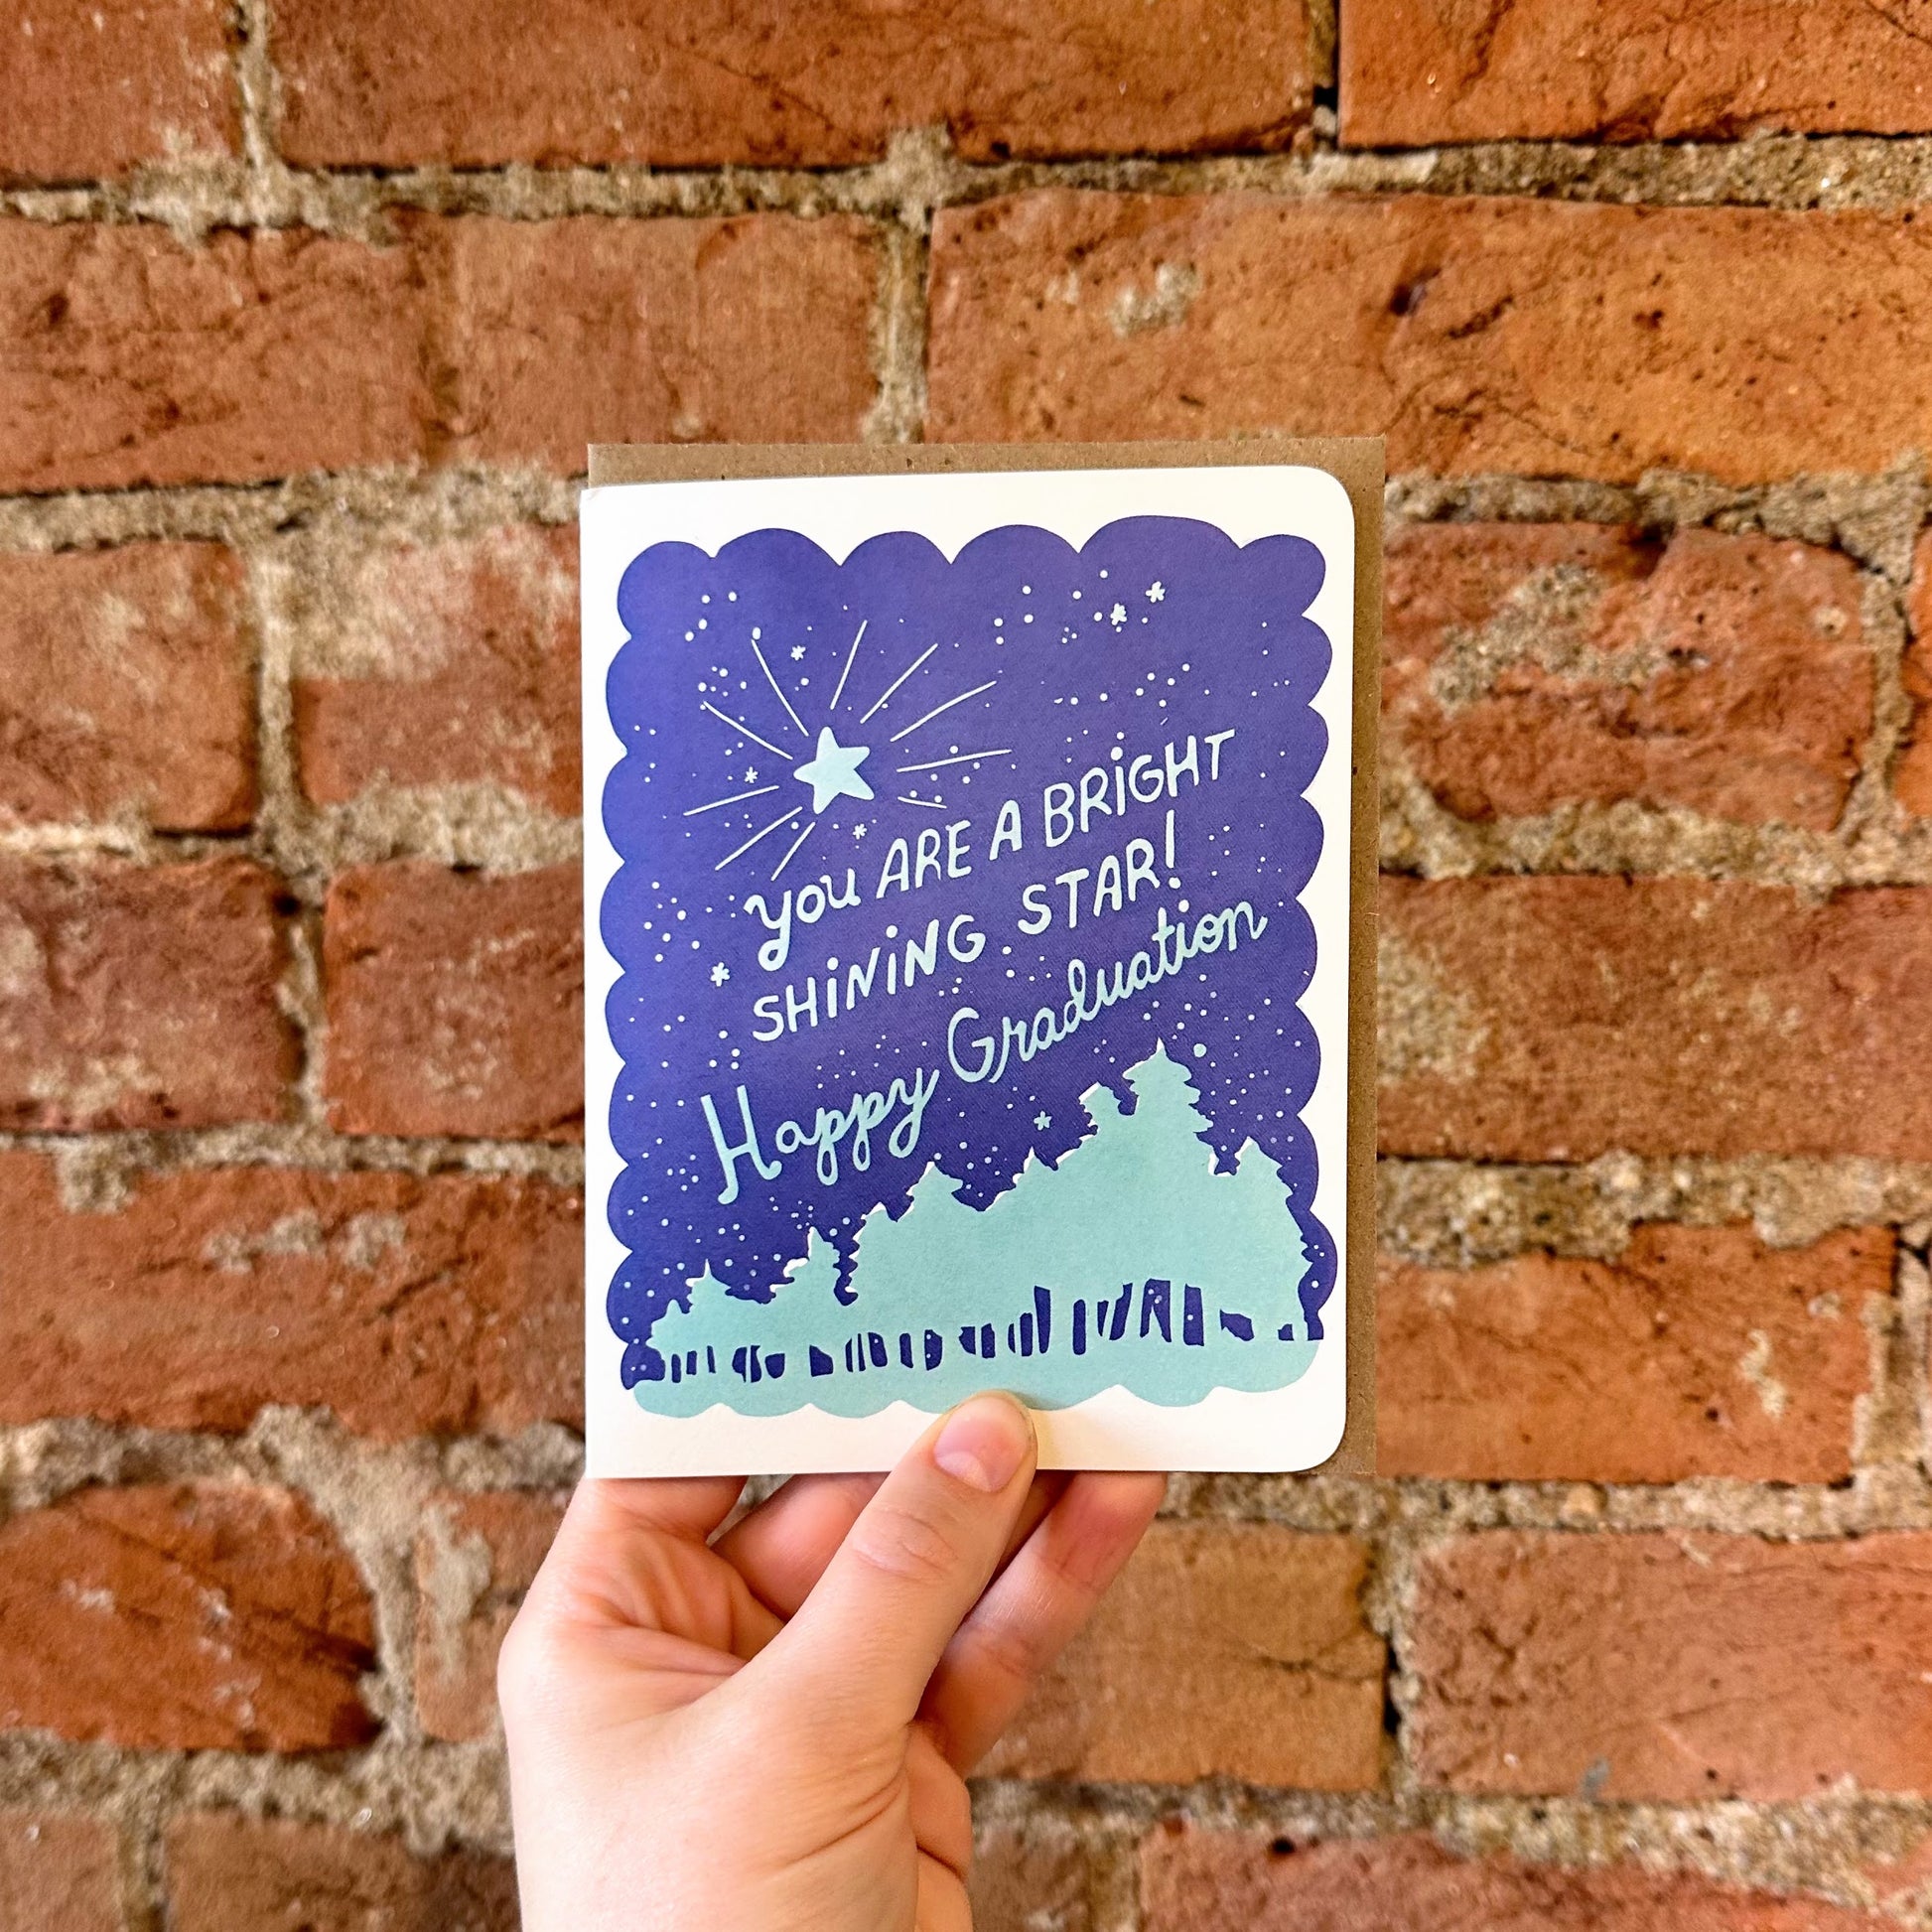 you ARE A BRiGHT
SHiNiNG STAR!
Happy Graduation